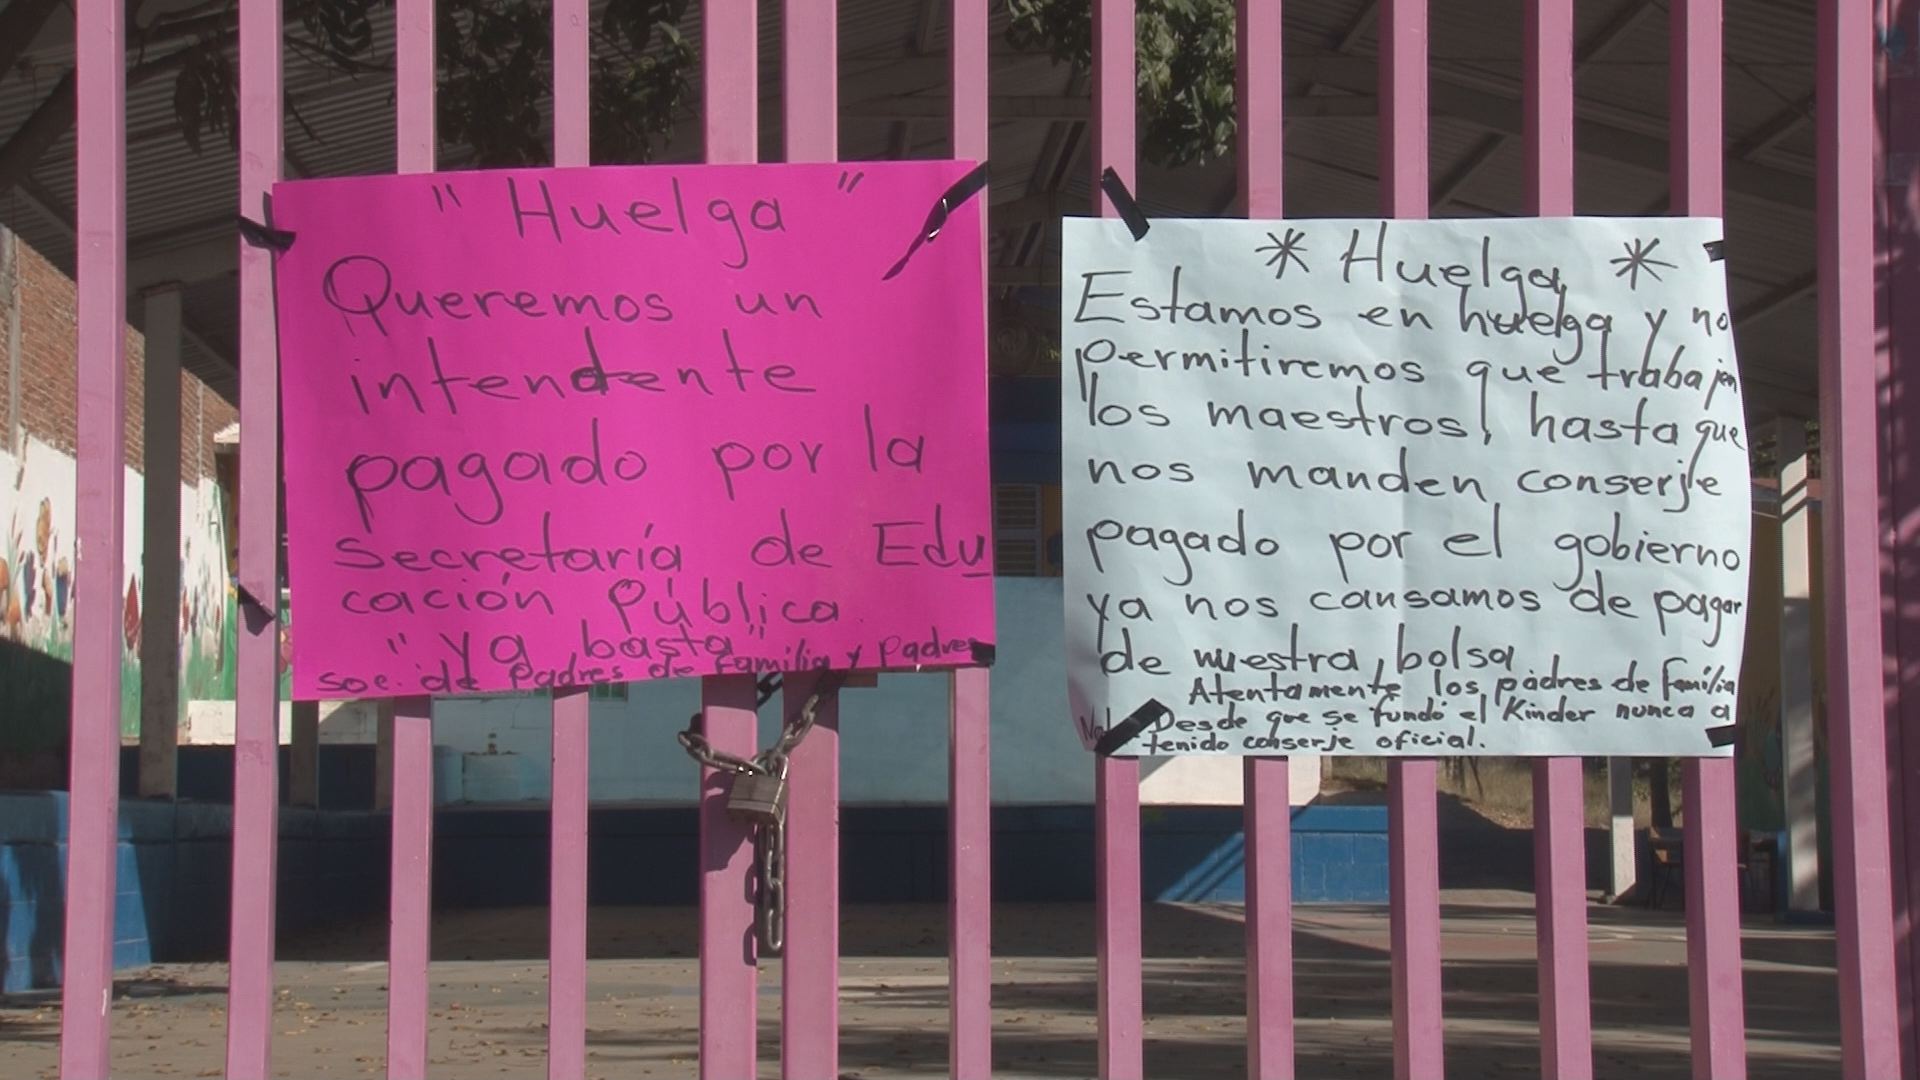 " Huelga "
Queremos un
intendente
pagado por la
secretaría de Edu
cación Pública.
" ya basta"
soc. de Padres de familia y Padres
* Huelga *
Estamos en huelga y no
permitiremos que trabajen
los maestros, hasta que
nos manden conserje
pagado por el gobierno
ya nos cansamos de pagar
de nuestra bolsa.
Atentamente los padres de familia
Desde que se fundó el Kinder nunca a
tenido conserje oficial.